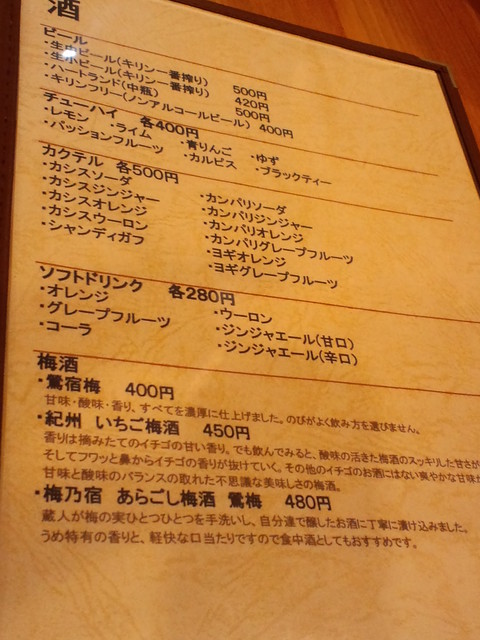 酒
ビール
・生中ビール(キリン一番搾り) 500円
・生小ビール(キリン一番搾り) 420円
・ハートランド(中瓶) 500円
・キリンフリー(ノンアルコールビール) 400円
チューハイ 各400円
・レモン ・ライム ・青りんご ・ゆず
・パッションフルーツ ・カルピス ・ブラックティー
カクテル 各500円
・カシスソーダ ・カンパリソーダ
・カシスジンジャー ・カンパリジンジャー
・カシスオレンジ ・カンパリオレンジ
・カシスウーロン ・カンパリグレープフルーツ
・シャンディガフ ・ヨギオレンジ
・ヨギグレープフルーツ
ソフトドリンク 各280円
・オレンジ ・ウーロン
・グレープフルーツ ・ジンジャエール(甘口)
・コーラ ・ジンジャエール(辛口)
梅酒
・鶯宿梅 400円
甘味・酸味・香り、すべてを濃厚に仕上げました。のびがよく飲み方を選びません。
・紀州 いちご梅酒 450円
香りは摘みたてのイチゴの甘い香り。でも飲んでみると、酸味の活きた梅酒のスッキリした甘さが
そしてフワッと鼻からイチゴの香りが抜けていく。その他のイチゴのお酒にはない爽やかな甘味が
甘味と酸味のバランスの取れた不思議な美味しさの梅酒。
・梅乃宿 あらごし梅酒 鶯梅 480円
蔵人が梅の実ひとつひとつを手洗いし、自分達で醸したお酒に丁寧に漬け込みました。
うめ特有の香りと、軽快な口当たりですので食中酒としてもおすすめです。